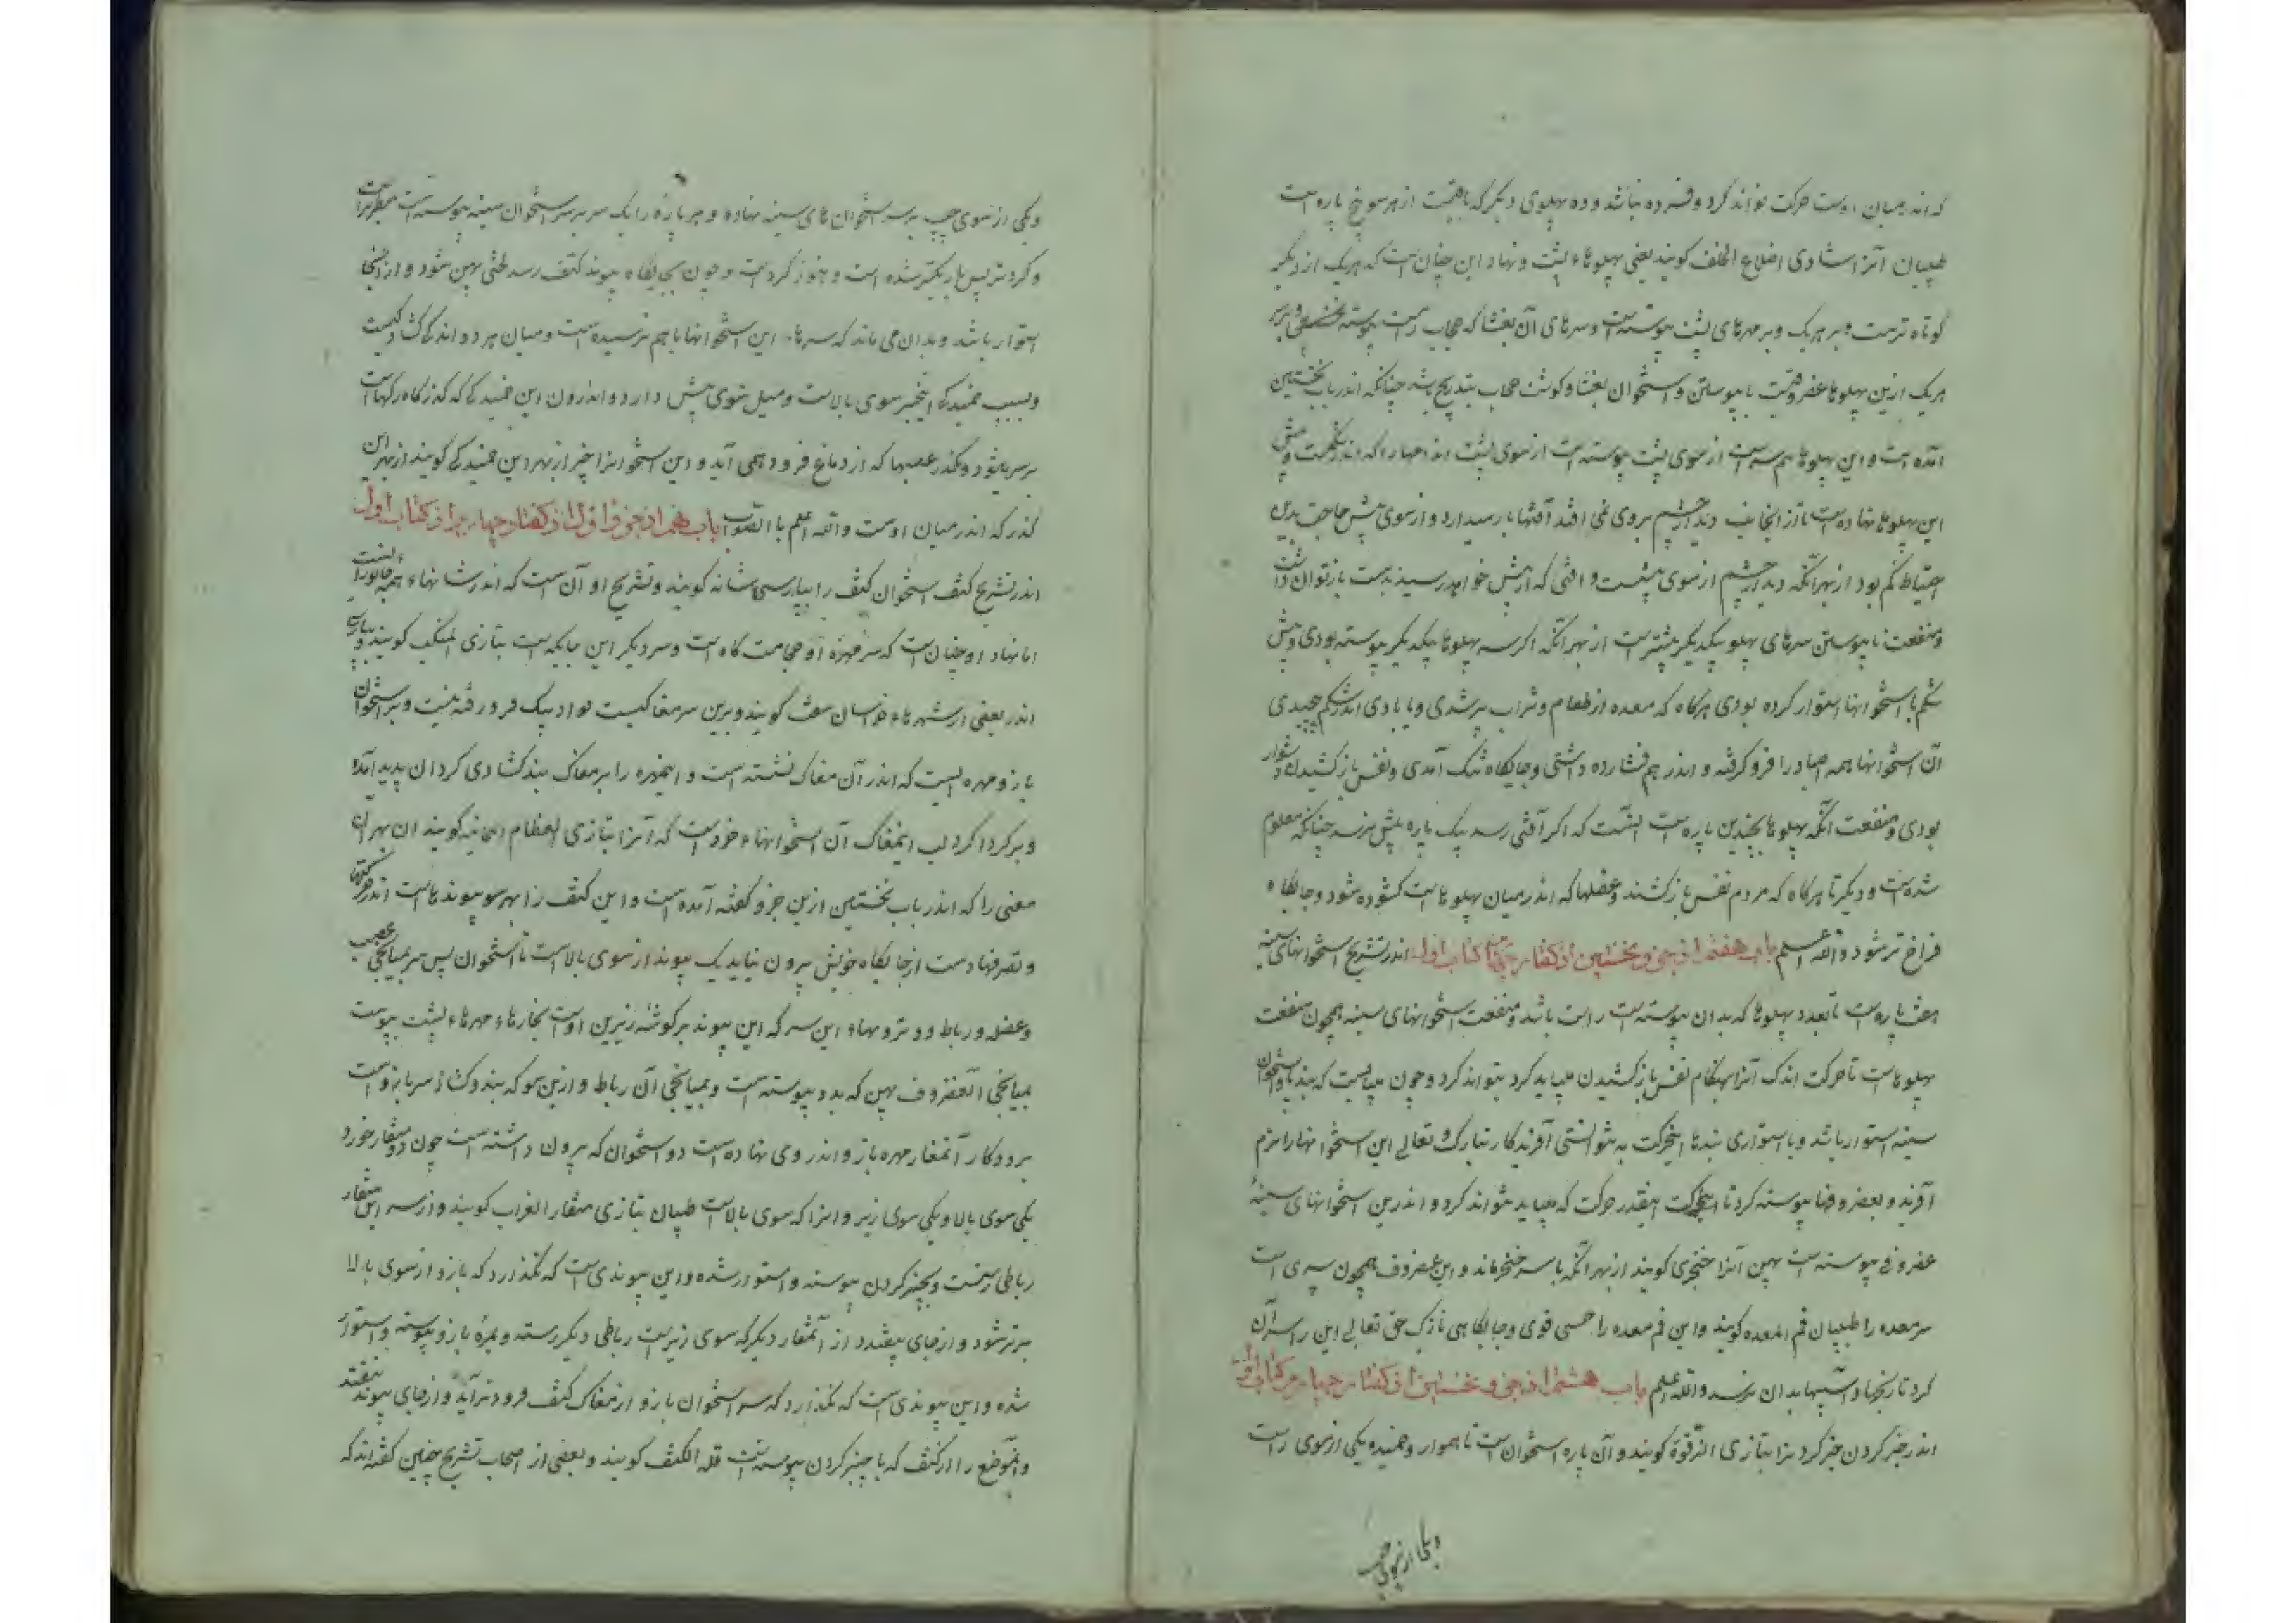 که اندر میان اوست حرکت تواند کرد و فسرده نباشد و ده پهلوی دیگر که باقیست از هر سو پنج پاره است
طبیبان آنرا بتازی اضلاع الخلف گویند یعنی پهلوهاء پشت و نهاد این چنان است که هر یک از دیگر
کوتاه ترست و سر هر یک و بر مهرهای پشت پیوسته است و سرهای آن بغشا که حجاب است پیوسته
هر یک ازین پهلوها غضروفیست تا پیوستن استخوان بغشا و کوشت حجاب بتدریج باشد چنانکه اندر باب نخستین
آمده است و این پهلوها هم سر است از سوی پشت پیوسته است از سوی پشت اندامها را که اندر شکمست و پیش
این پهلوها نهاده است تا از آنجانب دیدار چشم بروی نمی افتد آفتها باز میدارد و از سوی پیش حاجت بدین
احتیاط کم بود از بهر آنکه دیدار چشم از سوی پیشست و آفتی که از پیش خواهد رسید بدست باز توان داشت
و منفعت نا پیوستن سرهای پهلو بیکدیگر بیشترست از بهر آنکه اگر سر پهلوها بیکدیگر پیوسته بودی و پیش
شکم با استخوانها استوار کرده بودی هر گاه که معده از طعام و شراب پر شدی و یا بادی اندر شکم پیچیدی
آن استخوانها همه احشا را فرو گرفته و اندر هم فشارده داشتی و جایگاه تنگ آمدی و نفس باز کشیدن دشوار
بودی و منفعت آنکه پهلوها بچندین پاره است آنست که اگر آفتی رسد بیک پاره بیش نرسد چنانکه معلوم
شده است و دیگر تا هر گاه که مردم نفس باز کشند و عضلها که اندر میان پهلوهاست کشوده شود و جایگاه
فراخ تر شود والله اعلم باب هفتم از جزو نخستین از گفتار چهارم از کتاب اول اندر تشریح استخوانهای سینه
هفت پاره است تا بعدد پهلوها که بدان پیوسته است راست باشد و منفعت استخوانهای سینه همچون منفعت
پهلوهاست تا حرکت اندک آنرا بهنگام نفس باز کشیدن میباید کرد بتواند کرد و چون میبایست که بندها استخوان
سینه استوار باشد و با استواری بندها این حرکت نتوانستی آفریدگار تبارک و تعالی این استخوانها را نرم
آفرید و بغضروفها پیوسته کرد تا اینقدر حرکت که میباید بتواند کرد و اندرین استخوانهای سینه
غضروفی پیوسته است پهن آنرا خنجری گویند از بهر آنکه با سر خنجر ماند و این غضروف همچون سپری است
سر معده را طبیبان فم المعده گویند و این فم معده را حسی قوی و جایگاهی نازک حق تعالی این را سپر آن
کرد تا رنجها و آسیبها بدان نرسد والله اعلم باب هشتم از جزو نخستین از گفتار چهارم از کتاب اول
اندر چنبر گردن چنبر گردن را بتازی الترقوة گویند و آن پاره استخوان است ناهموار و خمیده یکی از سوی راست
و یکی از سوی چپ
و یکی از سوی چپ بر سر استخوان های سینه نهاده و هر پاره را یک سر بر سر استخوان سینه پیوسته است
و گردتر پس باریکتر شده است و هنوز گرد است و چون بجایگاه پیوند کتف رسد لختی پهن شود و از آنجا
استوار باشد و بدان می ماند که سرهاء این استخوانها با هم نرسیده است و میان هر دو اندکی کشادگیست
و بسبب خمیدگی این چنبر سوی بالاست و میل سوی پیش دارد و اندرون این خمیدگی که گذرگاه رگهاست
بر سر میشود و گذر عصبها که از دماغ فرود همی آید و این استخوانرا چنبر از بهر این خمیدگی گویند از بهر این
گذر که اندر میان اوست والله اعلم باالصواب باب نهم از جزو اول از گفتار چهارم از کتاب اول
اندر تشریح کتف استخوان کتف را بپارسی شانه گویند و تشریح او آن است که اندر شانهاء همه جانورانست
اما نهاد او چنان است که سر مهره او حجامت گاه است و سر دیگر این جایگه است بتازی المنکب گویند و بپارسی
اندر بعضی از شهرهاء خراسان سفت گویند و برین سر مغاکیست گرد لیک فرو رفته نیست و بر استخوان
بازو مهره ایست که اندر آن مغاک نشسته است و این مهره را بر مغاک بند گشادی گردان پدید آمده
و بر گرداگرد لب این مغاک آن استخوانهاء خردست که آنرا بتازی العظام السمسمانیه گویند از بهر آن
معنی را که اندر باب نخستین ازین جزو گفته آمده است و این کتف را بهر سو پیوندهاست اندر حرکتها
و تصرفها دست از جایگاه خویش بیرون نیاید یک پیوند از سوی بالاست تا استخوان پس سر بمیانجی عصب
و عضله و رباط و وترو بهاء این سر که این پیوند بر گوشه زیرین اوست بخارهاء مهرهاء پشت پیوست
بمیانجی آن غضروف پهن که بدو پیوسته است و بمیانجی آن رباط و ازین سو که بند و گشاد سر بازو است
بر دو کنار آن مغاک مهره بازو اندر وی نهاده است دو استخوان که بیرون داشته است چون دو منقار خورد
یکی سوی بالا و یکی سوی زیر و آنرا که سوی بالاست طبیبان بتازی منقار الغراب گویند و از سر این منقار
رباطی رستست و بچنبر گردن پیوسته و استوار شده و این پیوندی است که نگذارد که بازو از سوی بالا
برتر شود و از جای بیفتد و از آن منقار دیگر که سوی زیر است رباطی دیگر رسته و بمهره بازو پیوسته و استوار
شده و این پیوندی است که نگذارد که سر استخوان بازو از مغاک کتف فرودتر آید و از جای پیوند نیفتد
و آن موضع را از کتف که با چنبر گردن پیوسته است قله الکتف گویند و بعضی از اصحاب تشریح چنین گفته اند که